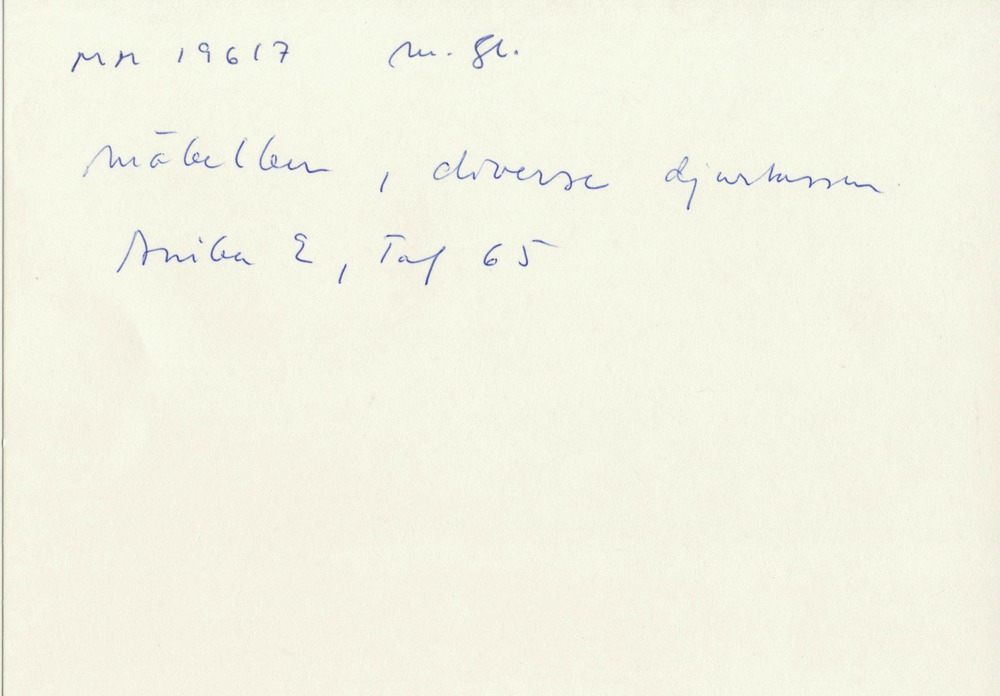 MM 19617 m. gl.
möbelben, diverse djurtassar
Aniba 2, Taf 65